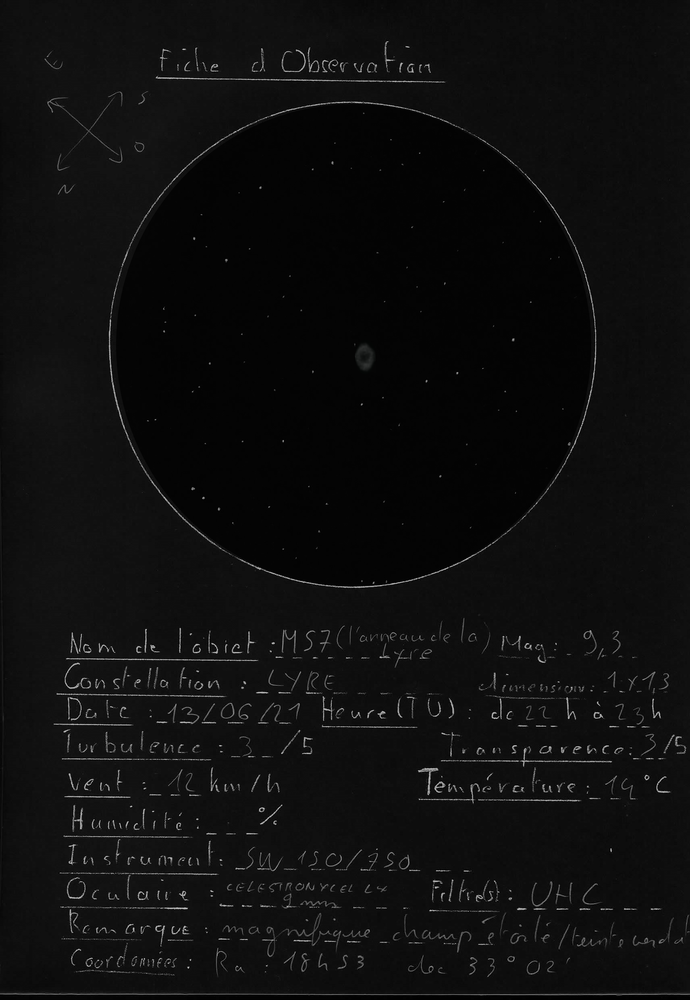 Fiche d Observation
E
S
O
N
Nom de l'objet : M57 (l'anneau de la)
Lyre
Mag : 9,3
Constellation : LYRE
dimension : 1x1,3
Date : 13/06/21 Heure (TU) : de 22 h à 23h
Turbulence : 3 /5
Transparence : 3/5
Vent : 12 km/h
Température : 14°C
Humidité : %
Instrument : SW 150/750
Oculaire : CELESTRON XCEL LX
9 mm
Filtre(s) : UHC
Remarque : magnifique champ étoilé/teinte
Coordonnées : Ra : 18h53 dec 33° 02'